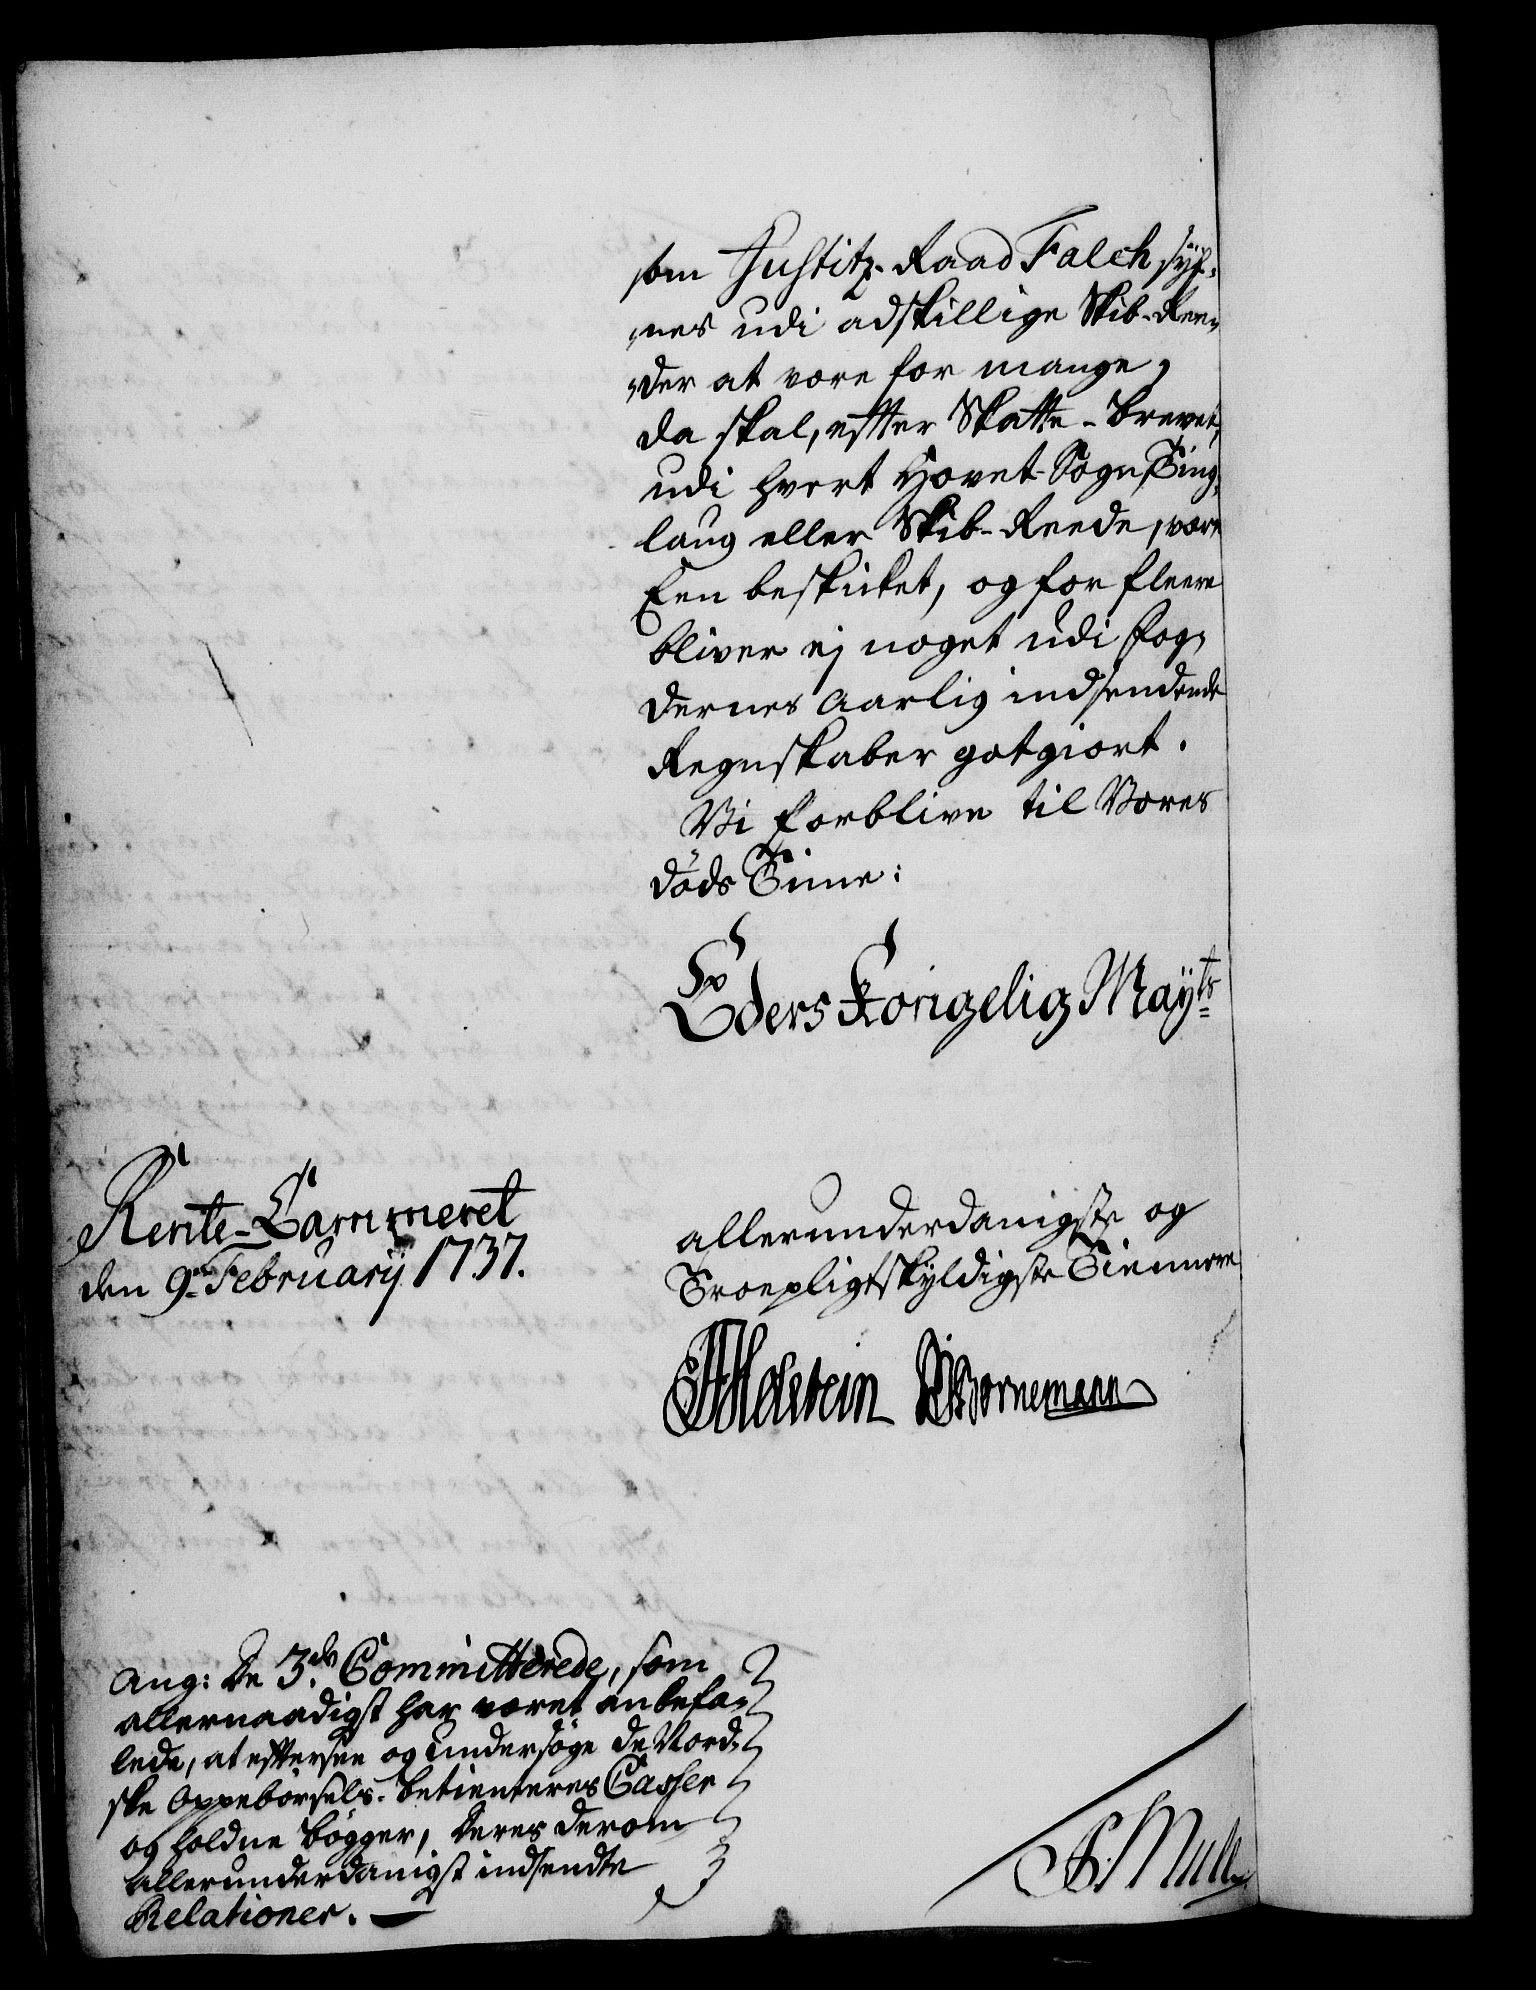 som Justitz-Raad Falch syf-
nes udi adskillige Skib-Ree-
der at være for mange,
da skal, efter Skatte-Brevet,
udi hvert Hovet-Sogn, Ting-
laug eller Skib-Reede, være
Een beskicket, og for fleere
bliver ej noget udi Fog-
dernes Aarlig indsendende
Regnskaber gotgiort.
Vi forblive til Vores
døds Time:
Eders Kongelig Mayts
Rente-Cammeret
den 9de Februarij 1737.
allerunderdanigste og
Troepligtskyldigste Tiennere
Holstein Bornemann
Ang: de 3de Committerede, som
allernaadigst har været anbefa-
lede, at eftersee og undersøge de Nord-
ske Oppebørsels-Betienteres Casser
og holdne Bøgger, deres derom
allerunderdanigst indsendte
Relationer.